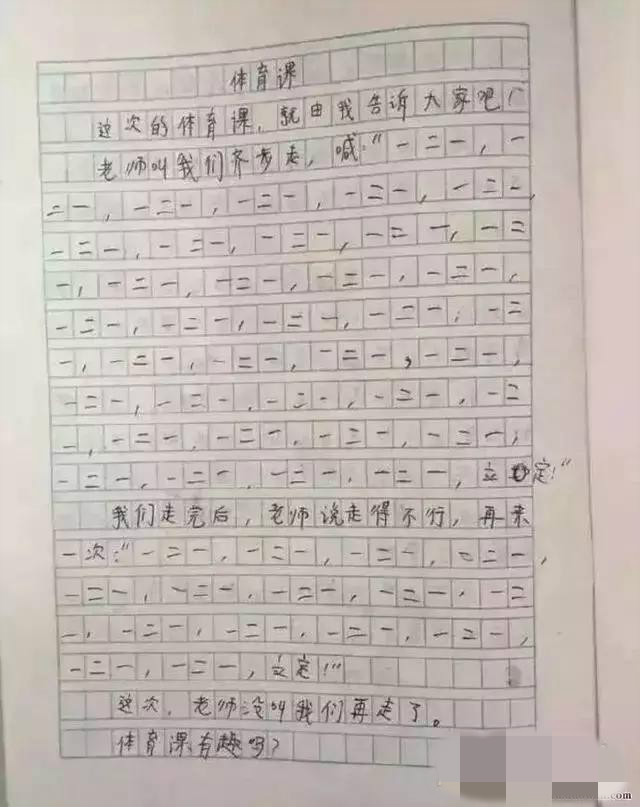 体育课
这次的体育课，就由我告诉大家吧！
老师叫我们齐步走，喊：“一二一，一
二一，一二一，一二一，一二一，一二一，
一二一，一二一，一二一，一二一，一二
一，一二一，一二一，一二一，一二一，
一二一，一二一，一二一，一二一，一二
一，一二一，一二一，一二一，一二一，
一二一，一二一，一二一，一二一，一二
一，一二一，一二一，一二一，一二一，
一二一，一二一，一二一，一二一，立定！”
我们走完后，老师说走得不行，再来
一次：“一二一，一二一，一二一，一二一，
一二一，一二一，一二一，一二一，一二
一，一二一，一二一，一二一，一二一，
一二一，一二一，立定！”
这次，老师没叫我们再走了。
体育课有趣吗？